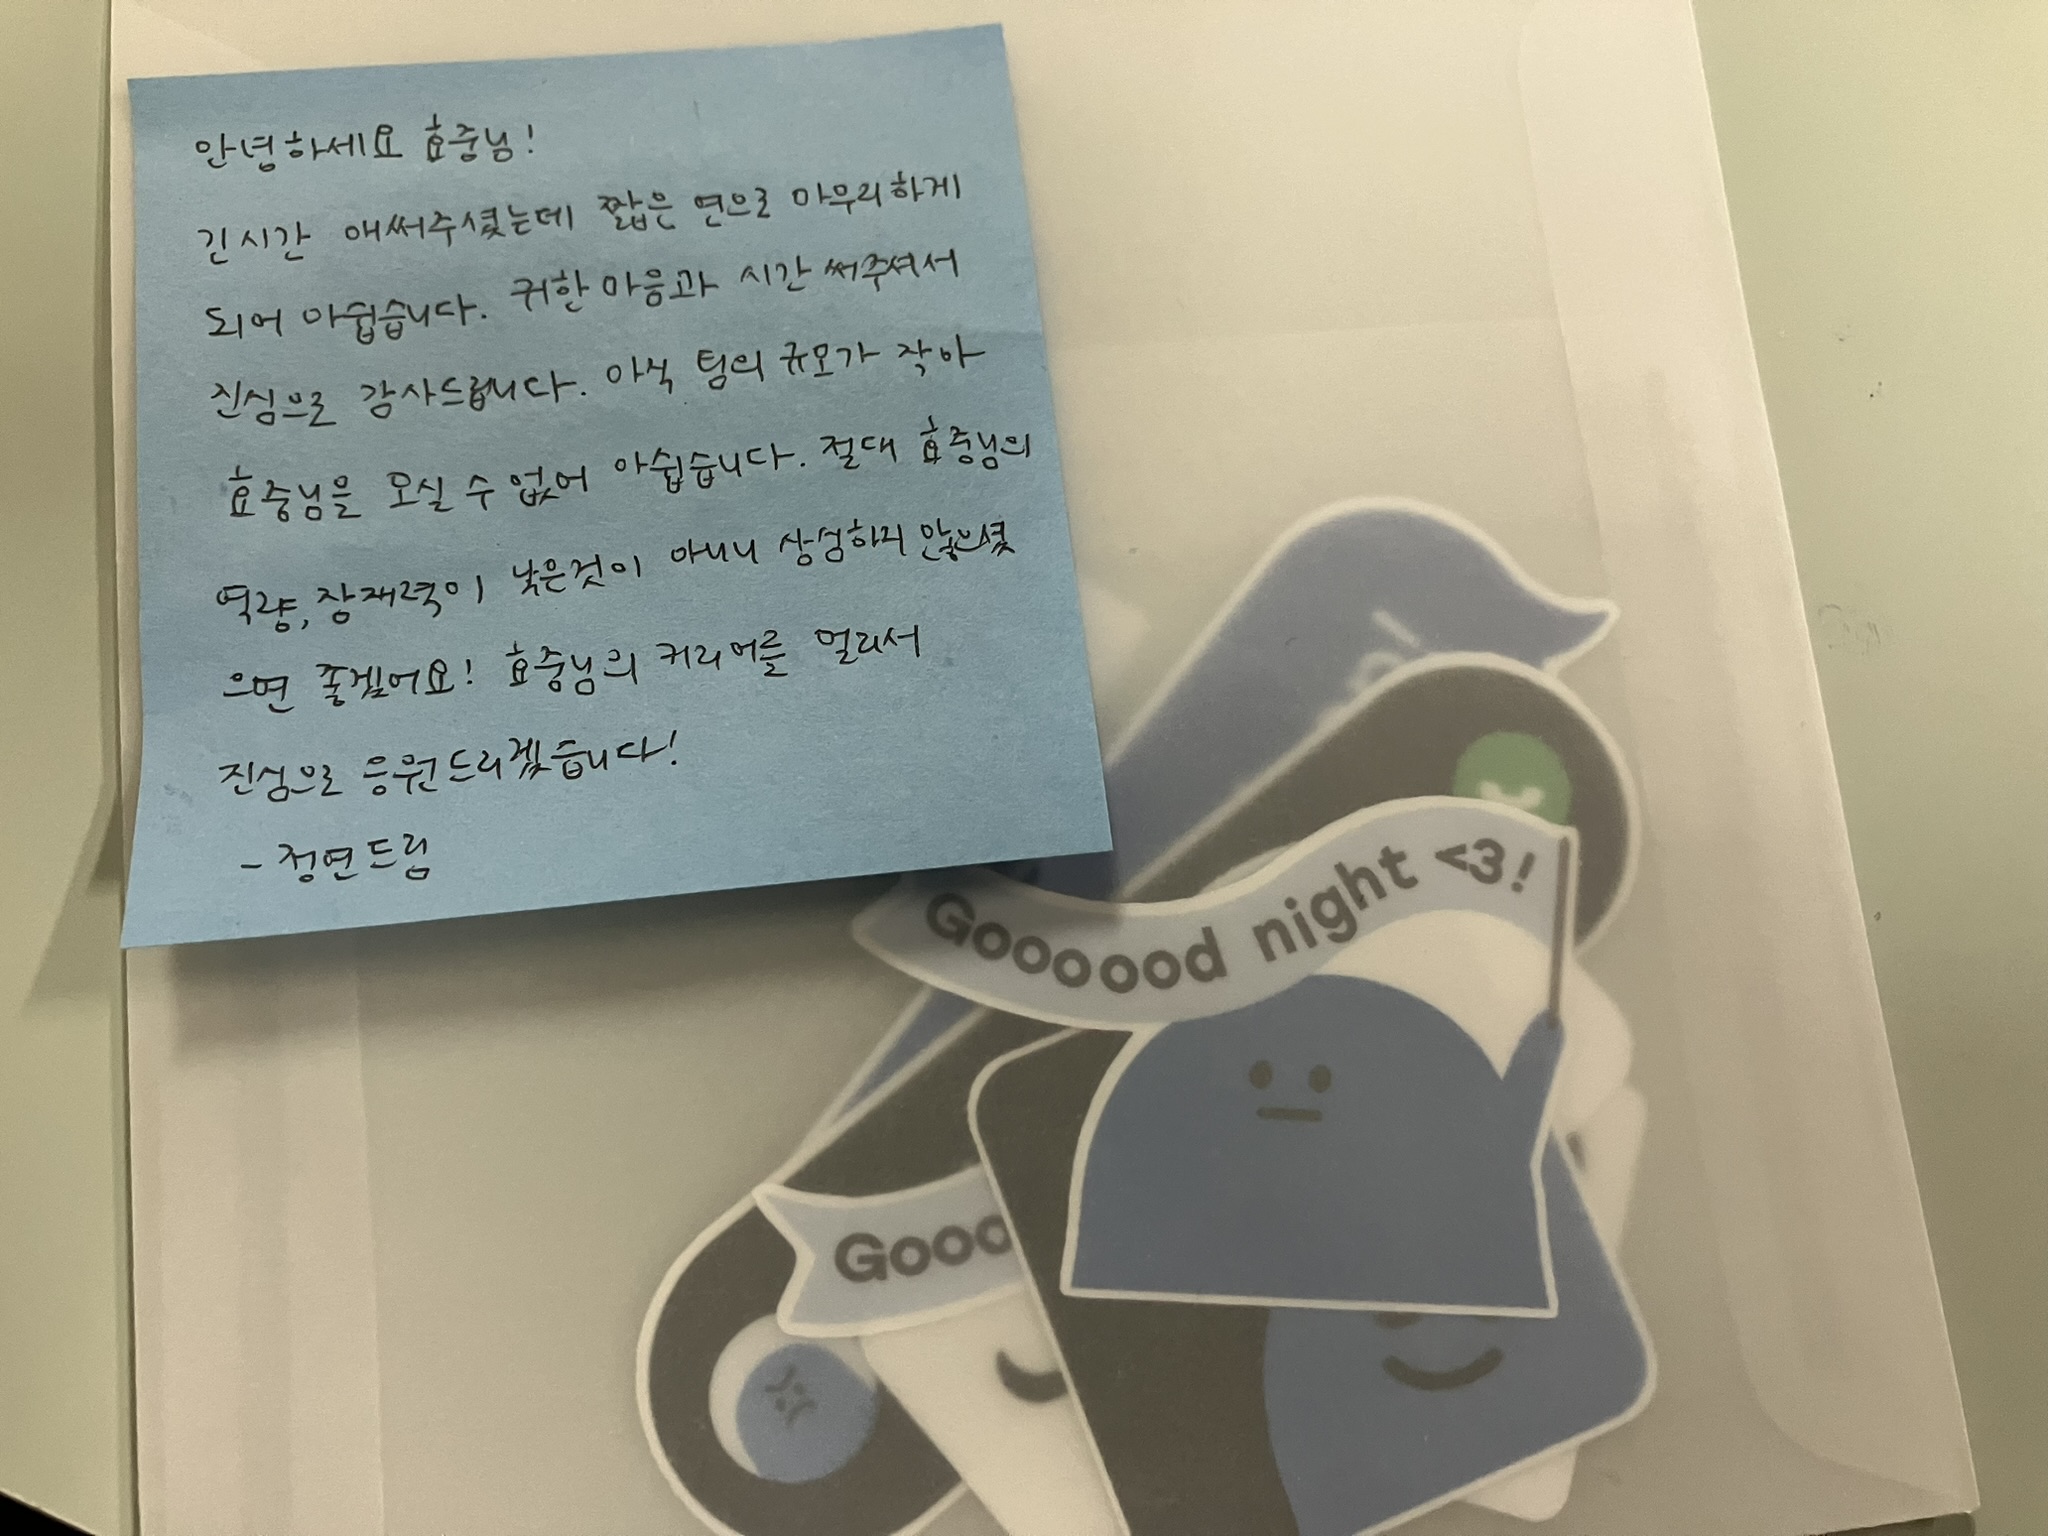 안녕하세요 효중님!
긴시간 애써주셨는데 짧은 연으로 마무리하게
되어 아쉽습니다. 귀한 마음과 시간 써주셔서
진심으로 감사드립니다. 아직 팀의 규모가 작아
효중님을 모실 수 없어 아쉽습니다. 절대 효중님의
역량, 잠재력이 낮은것이 아니니 상심하지 않으셨
으면 좋겠어요! 효중님의 커리어를 멀리서
진심으로 응원드리겠습니다!
- 정연드림
Goooood night <3!
Gooo